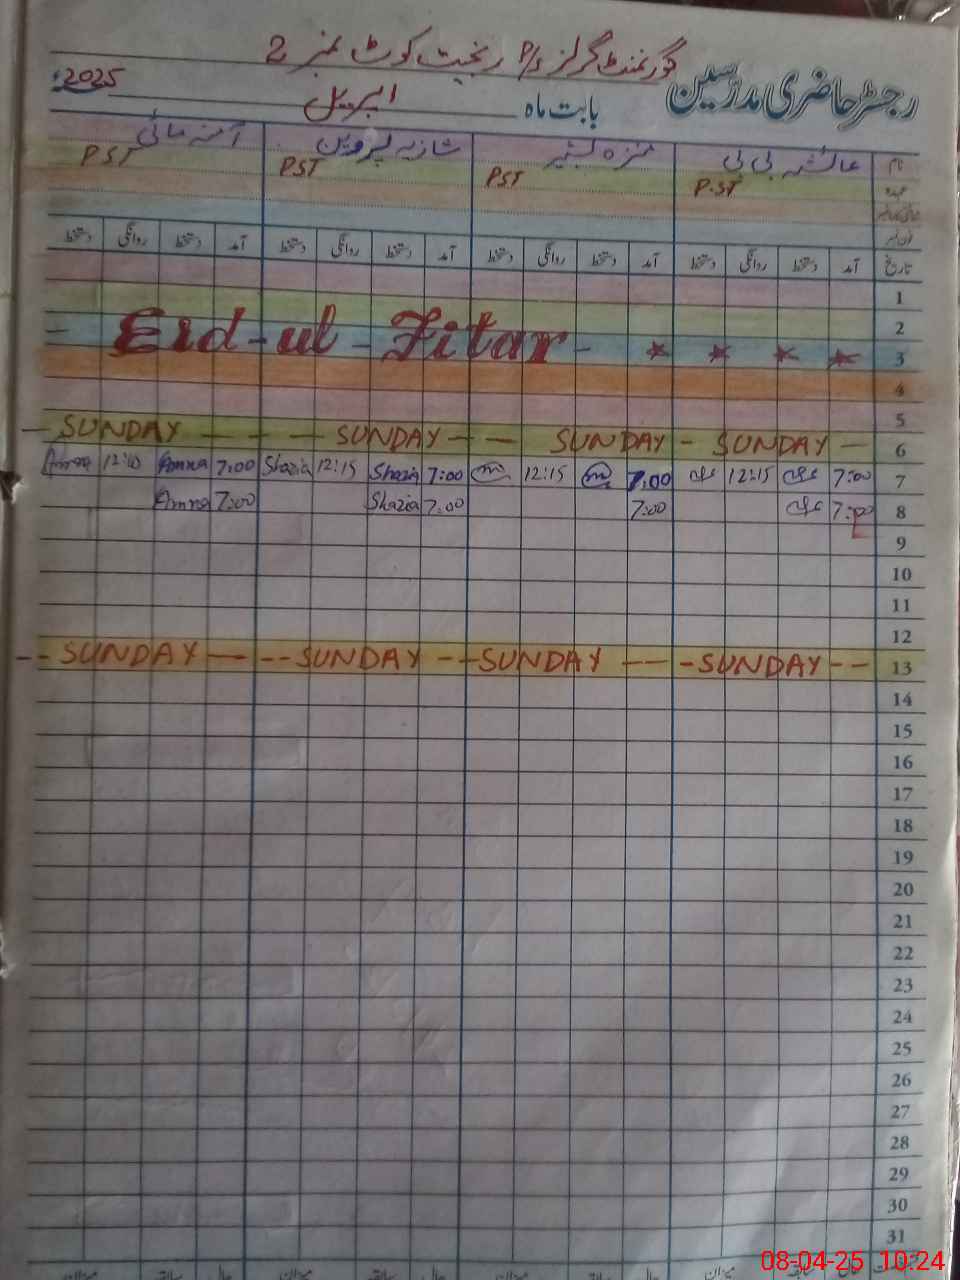 گورنمنٹ گرلز P/S رنجیت کوٹ نمبر 2
رجسٹر حاضری مدرسین بابت ماہ اپریل 2025ء
نام عائشہ بی بی منزہ بشیر شازیہ پروین آمنہ مائی
عہدہ P.ST PST PST PST
تاریخ آمد دستخط روانگی دستخط آمد دستخط روانگی دستخط آمد دستخط روانگی دستخط آمد دستخط روانگی دستخط
1
2
Eid-ul-Fitar- * * * * 3
4
5
SUNDAY SUNDAY SUNDAY SUNDAY 6
Amna 12:10 Amna 7:00 Shazia 12:15 Shazia 7:00 12:15 7:00 12:15 7:00 7
Amna 7:00 Shazia 7:00 7:00 7:00 8
9
10
11
12
SUNDAY SUNDAY SUNDAY SUNDAY 13
14
15
16
17
18
19
20
21
22
23
24
25
26
27
28
29
30
31
میزان سابقہ حال میزان سابقہ حال میزان سابقہ حال میزان سابقہ حال
08-04-25 10:24